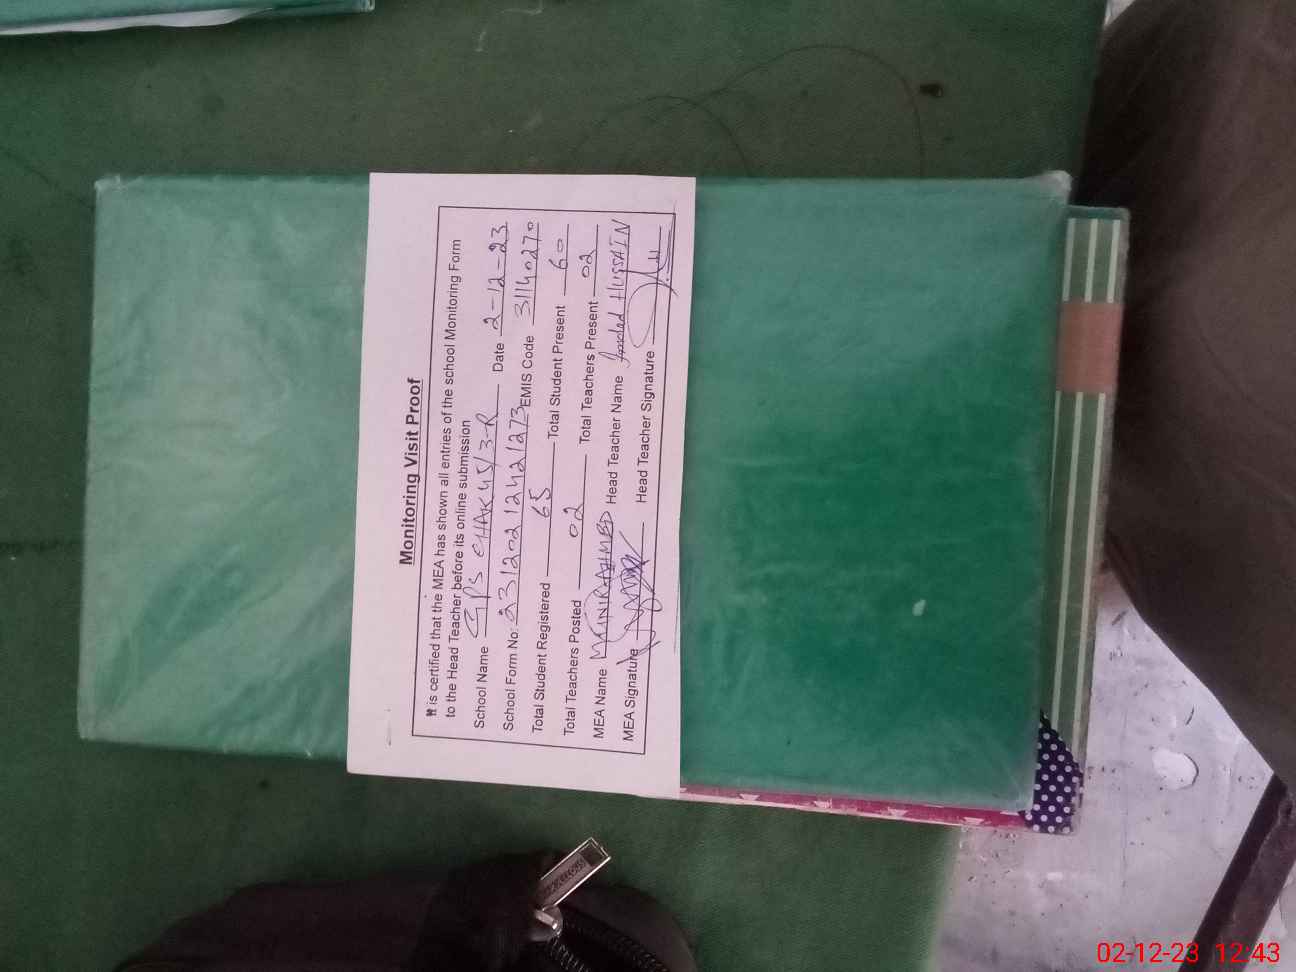 Monitoring Visit Proof
It is certified that the MEA has shown all entries of the school Monitoring Form
to the Head Teacher before its online submission
School Name GPS CHAK 45/3-R Date 2-12-23
School Form No: 23120212421273 EMIS Code 31140270
Total Student Registered 65 Total Student Present 60
Total Teachers Posted 02 Total Teachers Present 02
MEA Name MUNIR AHMED Head Teacher Name HUSSAIN
MEA Signature Head Teacher Signature
02-12-23 12:43